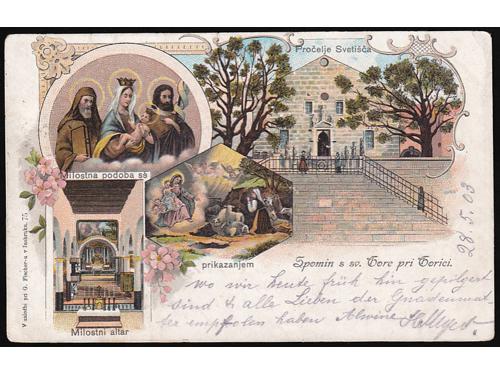 Pročelje Svetišča
Milostna podoba sė
prikazanjem
Milostni altar
Spomin s sv. Gore pri Gorici.
V založbi pri G. Fischer-u v Insbruku. 75
28. 5. 03
wo wir heute früh hin gepilgert
sind & alle Lieben der Gnadenmut
ter empfolen haben Alwine